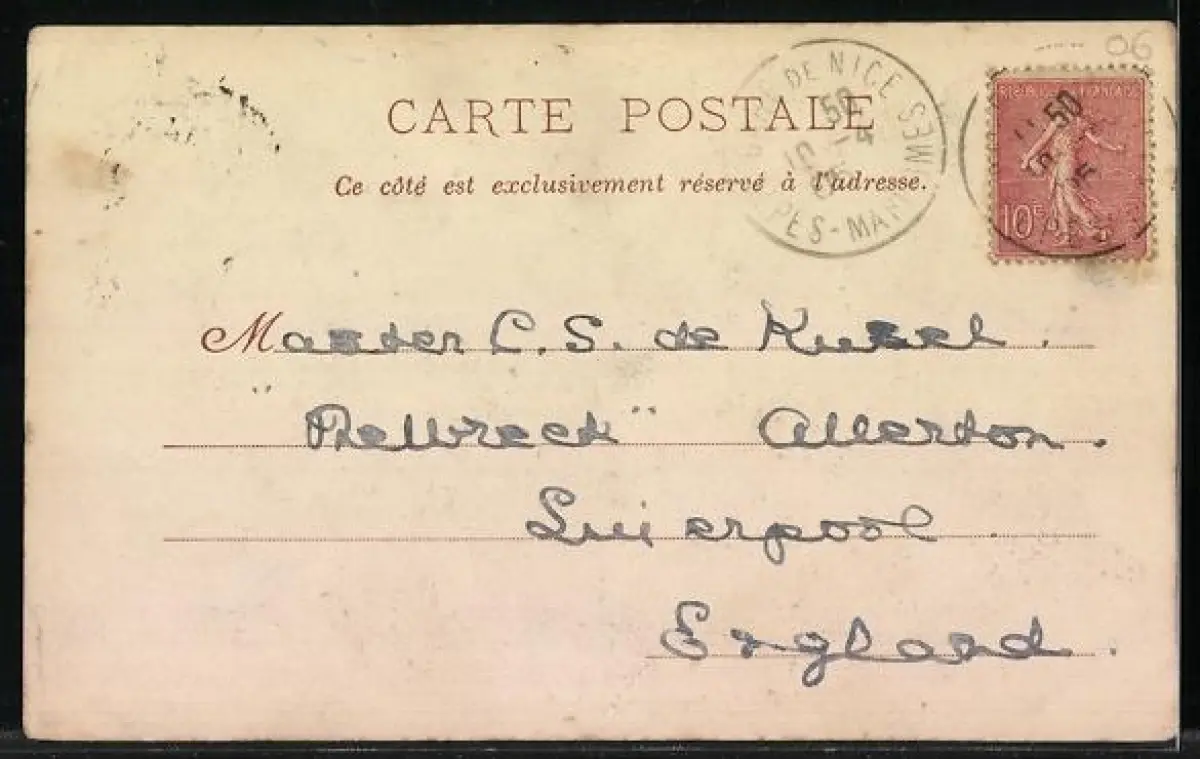 06
CARTE POSTALE
Ce côté est exclusivement réservé à l'adresse.
DE NICE
PES-MAR MES
50
RÉPUBLIQUE FRANÇAISE
50
10
Master C. S. de Kusel.
" " Allerton.
Liverpool
England.